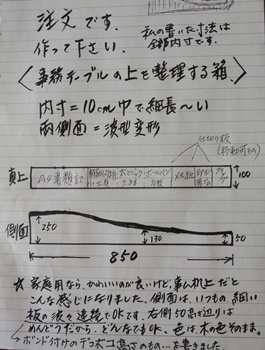 注文です.
作って下さい.
私の書いた寸法は
全部内寸です.
〈事務テーブルの上を整理する箱〉
内寸=10cm巾で細長〜い
両側面=波型変形
仕切り板
(移動可能)
真上
A4書類記
メモ紙
100
側面
250
130
50
850
☆家庭用なら、かわいいのが良いけど、事ム机上だと
こんな感じになりました。側面は、いつもの細い
板の波を連続でOKです。右側50高さ辺りは
めんどうだから、どんなでもOK、色は木の色そのまま。
ボンド付けのデコボコ高さのもの…を書きました。